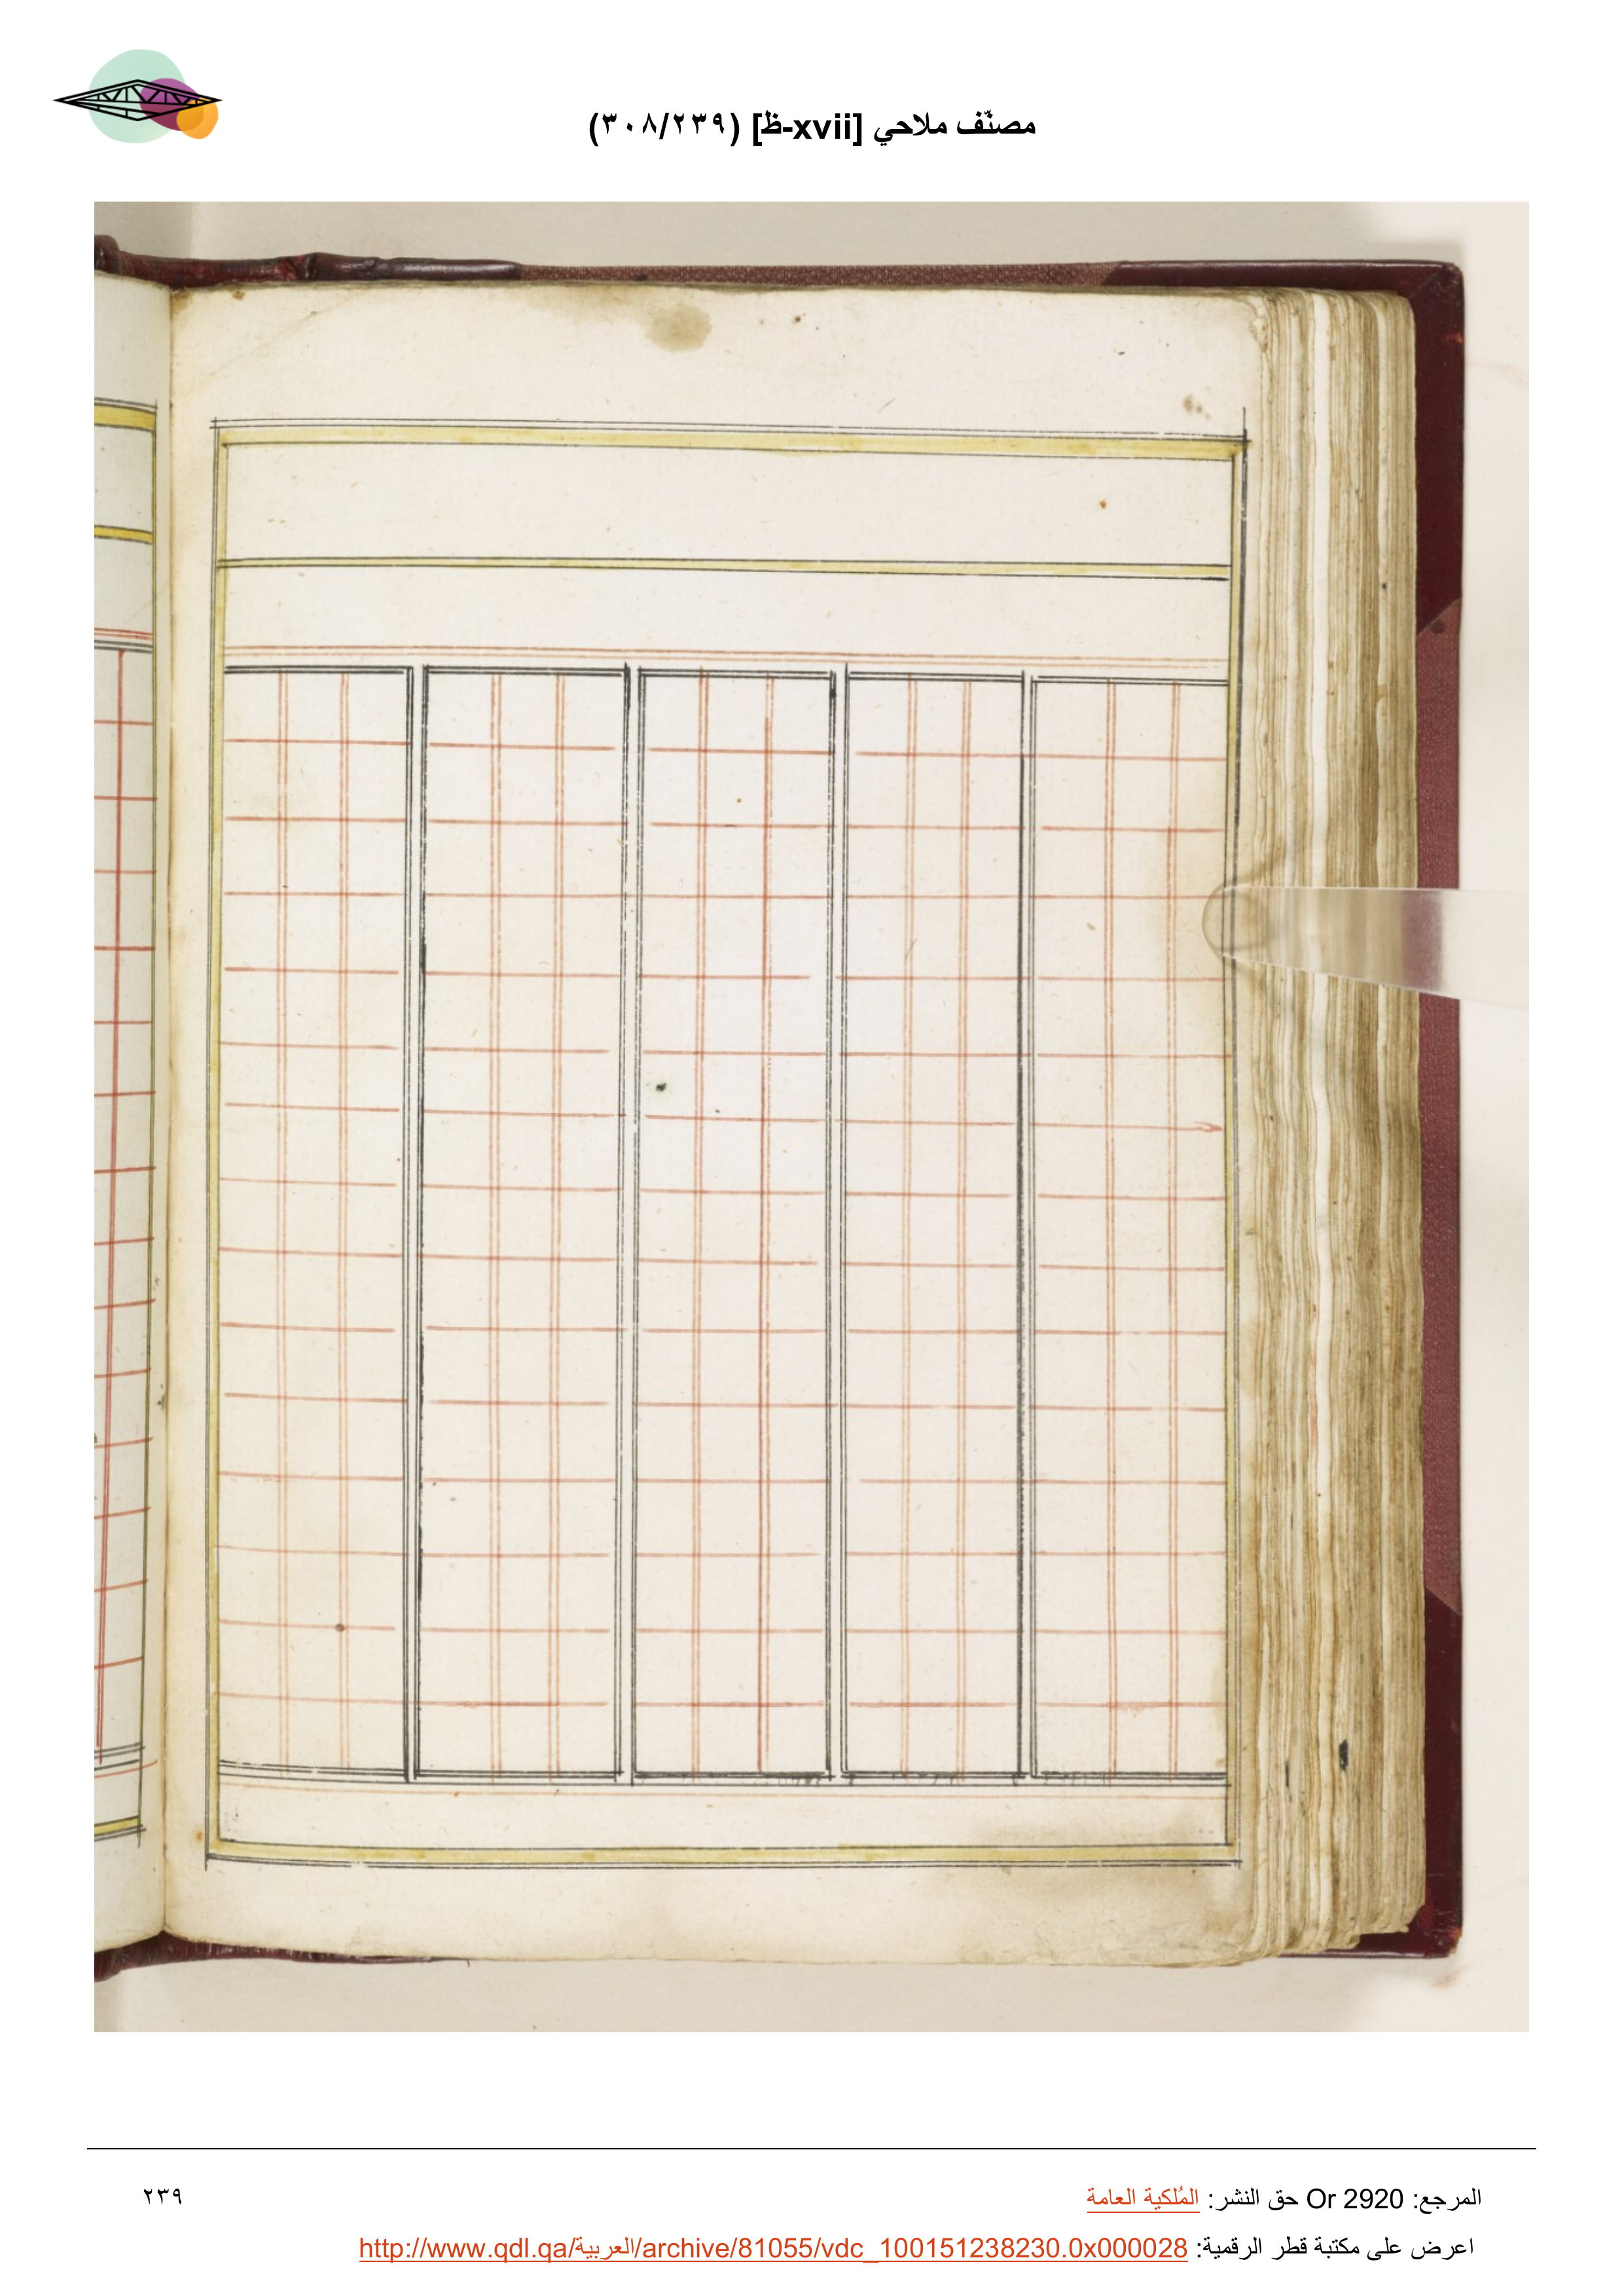 مصنّف ملاحي [xvii-ظ] (٣٠٨/٢٣٩)
المرجع: Or 2920 حق النشر: المُلكية العامة
٢٣٩
اعرض على مكتبة قطر الرقمية: http://www.qdl.qa/العربية/archive/81055/vdc_100151238230.0x000028